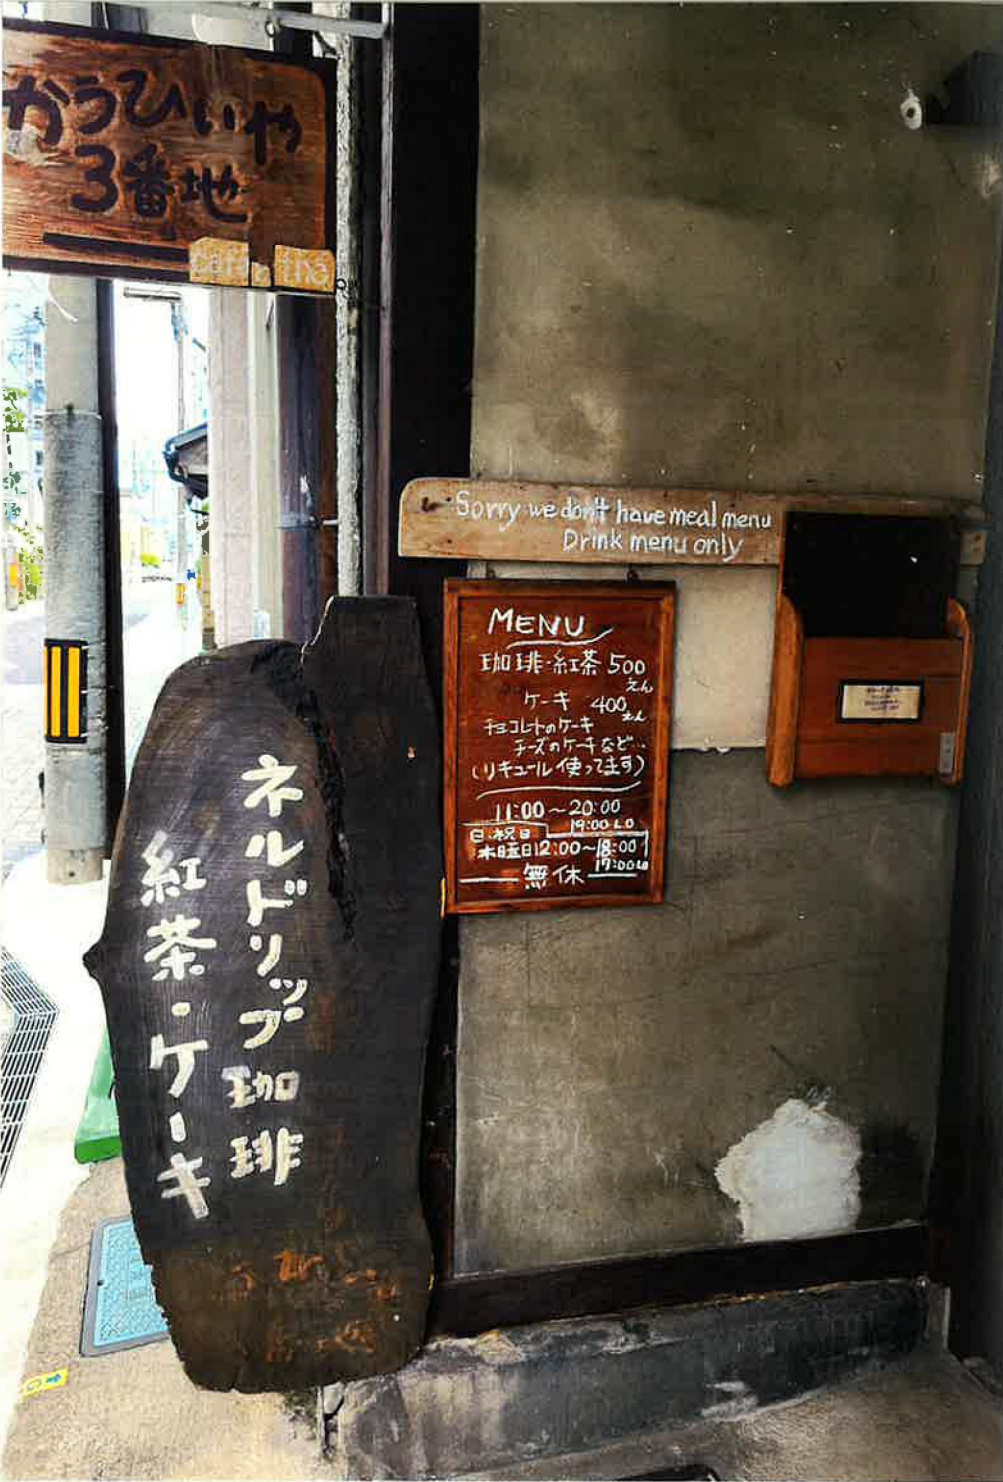 かうひいや
3番地
Sorry we don't have meal menu
Drink menu only
MENU
珈琲・紅茶 500
えん
ケーキ 400
えん
チョコレートのケーキ
チーズのケーキなど..
(リキュール使ってます)
11:00～20:00
19:00 LO
日・祝日
木曜日12:00～18:00
17:00LO
無休
ネルドリップ珈琲
紅茶・ケーキ